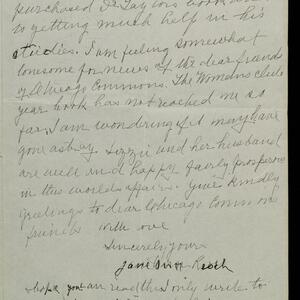 purchased Dr Taylors book and
is getting much help in his
studies. I am feeling somewhat
lonesome for news of the dear friends
of Chicago Commons. The Womans Club
year book has not reached me so
far. I am wondering if it may have
gone astray. Lizzie and her husband
are well and happy fairly prosperous
in this worlds affairs. Give kindly
greetings to dear Chicago Commons
friends with love
Sincerely yours
Jane
hope you can read this I only write to